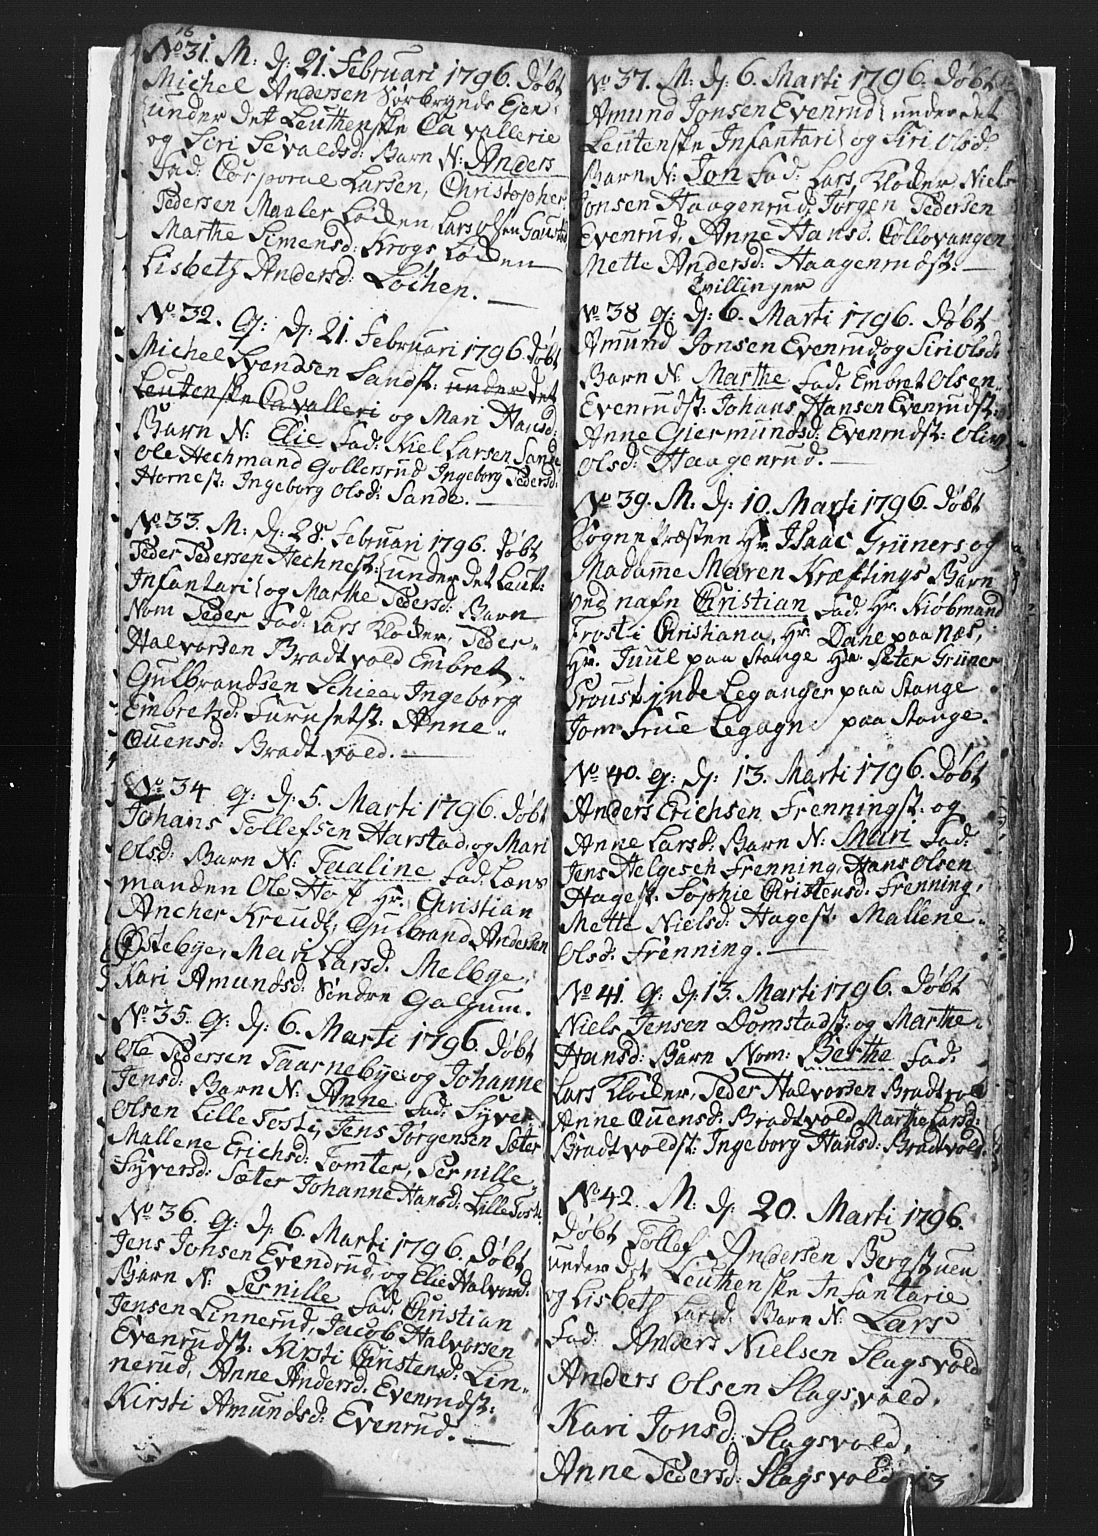 16
No 31. M: dj: 21. Februari 1796. Døbt
Michel Andersen Sørbrynds Ejen
under det Leuthenske Cavallerie
og Siri Sevaldsd: Barn N: Anders
Fad: Corporal Larsen, Christopher
Pedersen Maaler Løkken, Lars Olsen
Marthe Simensd: Krogs Løkken
Lisbeth Andersd: Løchen.
No 32. q: dj: 21. Februari 1796. Døbt
Michel Svendsen Sandst: under det
Leutenske Cavalleri og Mari Hansd:
Barn N: Elie Fad: Niel Larsen Sande
Ole Hechmand Gollersrud Ingeborg Pedersd:
Hornest: Ingeborg Olsd: Sande.
No 33. M: dj: 28. Februari 1796. Døbt
Peder Pedersen Hechnest: under det Leut:
Infantari og Marthe Pedersd: Barn
Nom Peder Fad: Lars Klocker, Peder
Halvorsen Bradtvold Embret
Gulbrandsen Schieer Ingeborg
Embretsd: Furusetst: Anne
Ouensd: Bradtvold.
No 34 q: dj 5. Marti 1796. Døbt
Johans Tollefsen Harstad, og Mari
Olsd: Barn N: Paaline Fad: Læns
manden Ole Host Hr: Christian
Ancher Kreudt, Gulbrand Andersen
Østebye, Mari Larsd. Melbye,
Kari Amundsd: Søndre Galgum.
No 35. q: dj: 6. Marti 1796. Døbt
Ole Pedersen Taarnebye: og Johanne
Jensd: Barn N: Anne Fad: Syver
Olsen Lille Tosti, Jens Jørgensen Sæter
Mallene Erichsd: Tomter, Pernille
Syversd: Sæter Johanne Hansd: Lille Toste
No 36. q: dj 6. Marti 1796. Døbt
Jens Jonsen Evendrud, og Elie Halvorsd:
Barn N: Pernille Fad: Christian
Jensen Linnerud, Jacob Halvorsen
Evenrudst: Kirsti Christensd: Lin
nerud, Anne Andersd: Evenrudst:
Kirsti Amundsd: Evenrud.
No 37. M: dj 6. Marti 1796. Døbt
Amund Jonsen Evenrud under det
Leutenske Infantari og Siri Olsd:
Barn N: Jon Fad: Lars Klocker Niels
Jonsen Haagenrud, Jørgen Pedersen
Evenrud, Anne Hansd. Collovangen
Mette Andersd: Haagenrudst:
Tvillinger
No 38 q: dj: 6. Marti 1796. Døbt
Amund Jonsen Evenrud, og Siri Olsd:
Barn N: Marthe Fad: Embret Olsen
Evenrudst: Johans Hansen Evenrudst:
Anne Giermundsd: Evenrudst: Oliv
Olsd: Haagenrud.
No 39. M: dj: 10. Marti 1796. Døbt
Sogne Præsten Hr. Isaac Grüners og
Madamme Maren Kræftings Barn
ved nafn Christian Fad: Hr. Kiøbmand
Frost i Christiana, Hr. Dahl paa Næs,
Hr: Juul paa Stange Hr: Peter Grüner
Proustinde Leganger paa Stange
Jomfrue Legagn: paa Stange.
No 40. q: dj: 13. Marti 1796. Døbt
Anders Erichsen Frenningst: og
Anne Larsd: Barn N: Mari Fad:
Jens Helgesen Frenning, Hans Olsen
Hagest: Sophie Christensd: Frenning,
Mette Nielsd: Hagest: Mallene
Olsd: Frenning.
No 41. q: dj: 13. Marti 1796. Døbt
Niels Jensen Domstadst: og Marthe
Hansd: Barn Nom: Berthe Fad:
Lars Klocker, Peder Halvorsen Bradtvold
Anne Ouensd: Bradtvold Marthe Larsd:
Bradtvoldst: Ingeborg Hansd: Bradtvold.
No 42. M: dj: 20. Marti 1796.
Døbt Tollof Andersen Bergstuen
under det Leuthenske Infantarie
og Lisbeth Larsd: Barn N: Lars
Fad: Anders Nielsen Slagsvold
Anders Olsen Slagsvold.
Kari Jonsd: Slagsvold,
Anne Pedersd: Slagsvold.
13